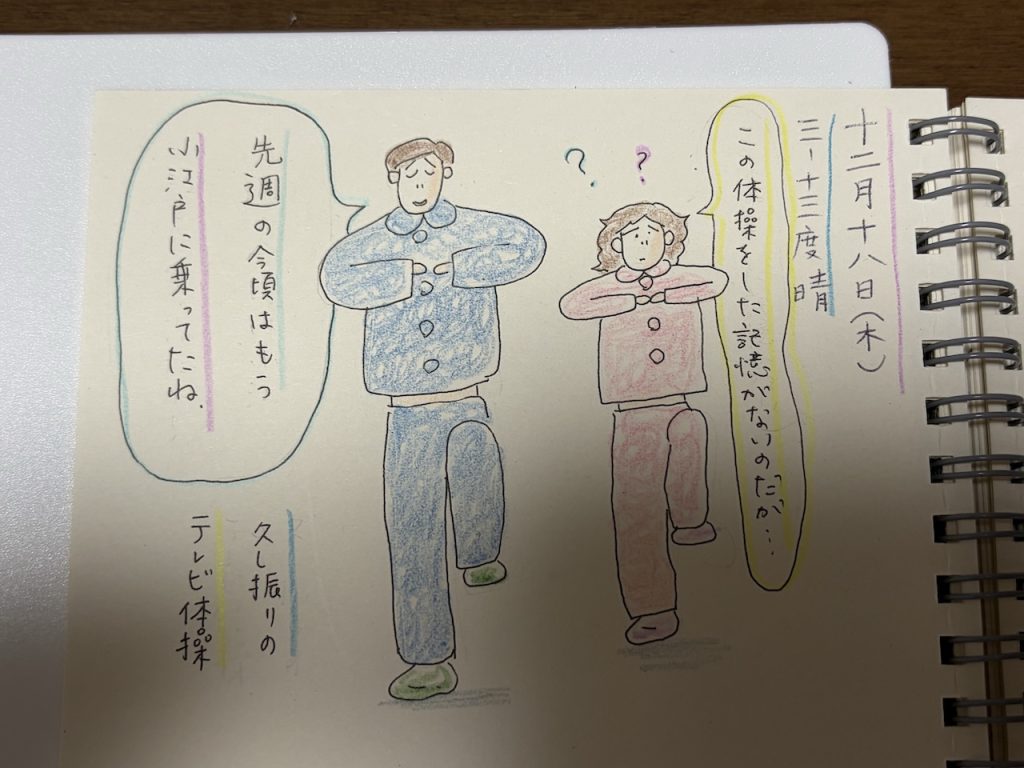 十二月十八日(木)
三-十三度 晴
この体操をした記憶がないのだが…
? ?
先週の今頃はもう
小江戸に乗ってたね.
久し振りの
テレビ体操